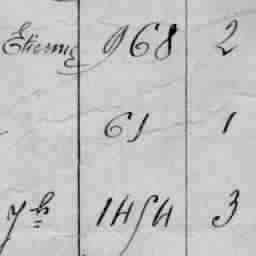 Etienne 968 2
61 1
7b 1454 3